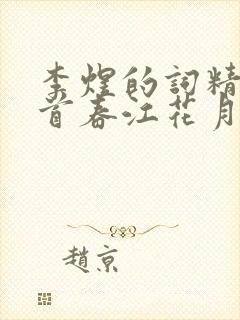 李煜的詞精
首春江花月
趙京